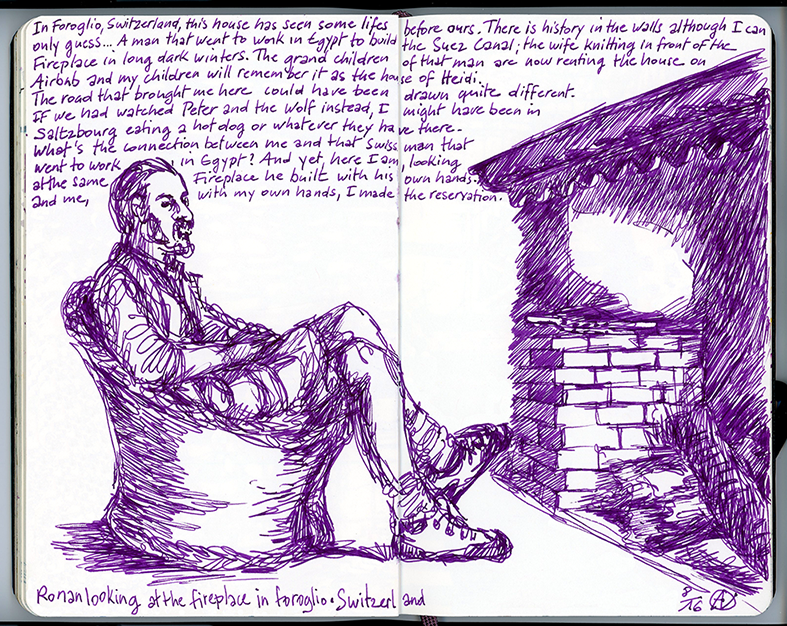 In Foroglio, Switzerland, this house has seen some lifes before ours. There is history in the walls although I can
only guess... A man that went to work in Egypt to build the Suez Canal; the wife knitting in front of the
Fireplace in long dark winters. The grand children of that man are now renting the house on
Airbnb and my children will remember it as the house of Heidi.
The road that brought me here could have been drawn quite different.
IF we had watched Peter and the Wolf instead, I might have been in
Saltzbourg eating a hot dog or whatever they have there.
What's the connection between me and that Swiss man that
went to work in Egypt? And yet, here I am, looking
at the same Fireplace he built with his own hands.
and me, with my own hands, I made the reservation.
Ronan looking at the fireplace in foroglio. Switzerland
8/16